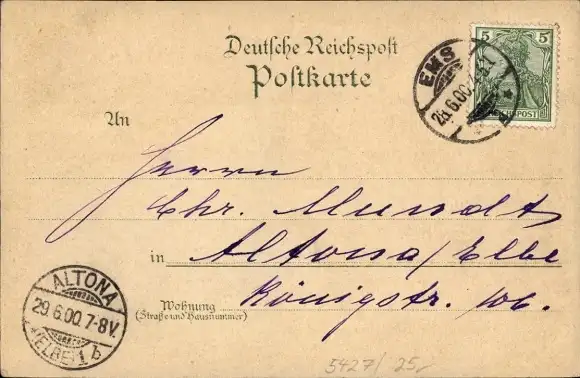 Deutsche Reichspost
Postkarte
5 5
REICHSPOST
EMS
28.6.00.
An
Herrn
Chr. Mundt
in Altona/Elbe
Wohnung
(Straße und Hausnummer)
Königstr. 106.
ALTONA
29.6.00.7-8V.
(ELBE) 1 b
5427/25